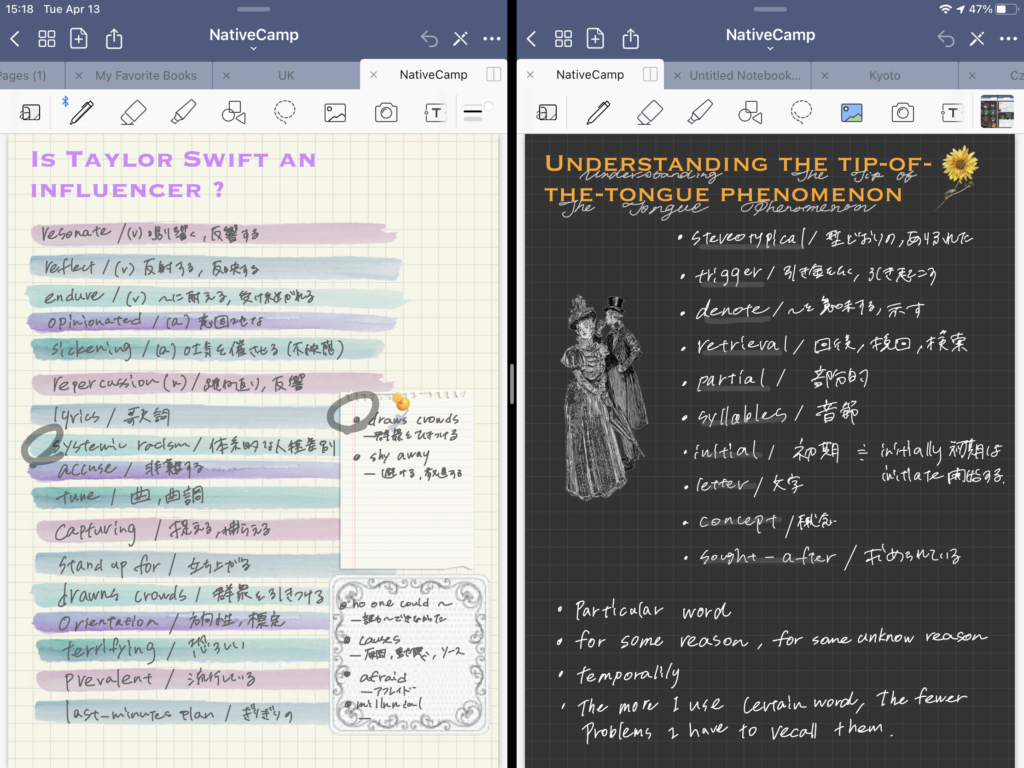 15:18 Tue Apr 13
47%
NativeCamp
Pages (1)
My Favorite Books
UK
NativeCamp
T
Is Taylor Swift an
influencer ?
resonate /(v) 鳴り響く, 反響する
reflect /(v) 反射する, 反映する
endure /(v) 〜に耐える, 受け継がれる
opinionated /(a) 意固地な
sickening /(a) 吐気を催させる (不快感)
repercussion (n) / 跳ね返り, 反響
lyrics / 歌詞
systemic racism / 体系的な人種差別
accuse / 非難する
tune / 曲, 曲調
capturing / 捉える, 捕らえる
stand up for / 立ち上がる
drawns crowds / 群衆を引きつける
Orientation / 方向性, 標定
terrifying / 恐ろしい
prevalent / 流行している
last-minutes plan / ぎりぎりの
draws crowds
―群衆をひきつける
shy away
― 避ける,
no one could ~
―誰も〜できなかった
causes
―原因, ソース
afraid
―アフレイド
millnnial
―
NativeCamp
NativeCamp
Untitled Notebook...
Kyoto
Cz
T
Understanding the tip-of-
the-tongue phenomenon
Understanding The Tip of
The Tongue Phenomenon
• stereotypical / 型どおりの, ありふれた
• trigger / 引き金を引く, 引き起こす
• denote / 〜を意味する, 示す
• retrieval / 回復, 挽回, 検索
• partial / 部分的
• syllables / 音節
• initial / 初期 ≒ initially 初期は
initiate 開始する.
• letter / 文字
• concept / 概念
• sought-after / 求められている
• Particular word
• for some reason, for some unknow reason
• temporalily
• The more I use certain word, the fewer
Problems I have to recall them.